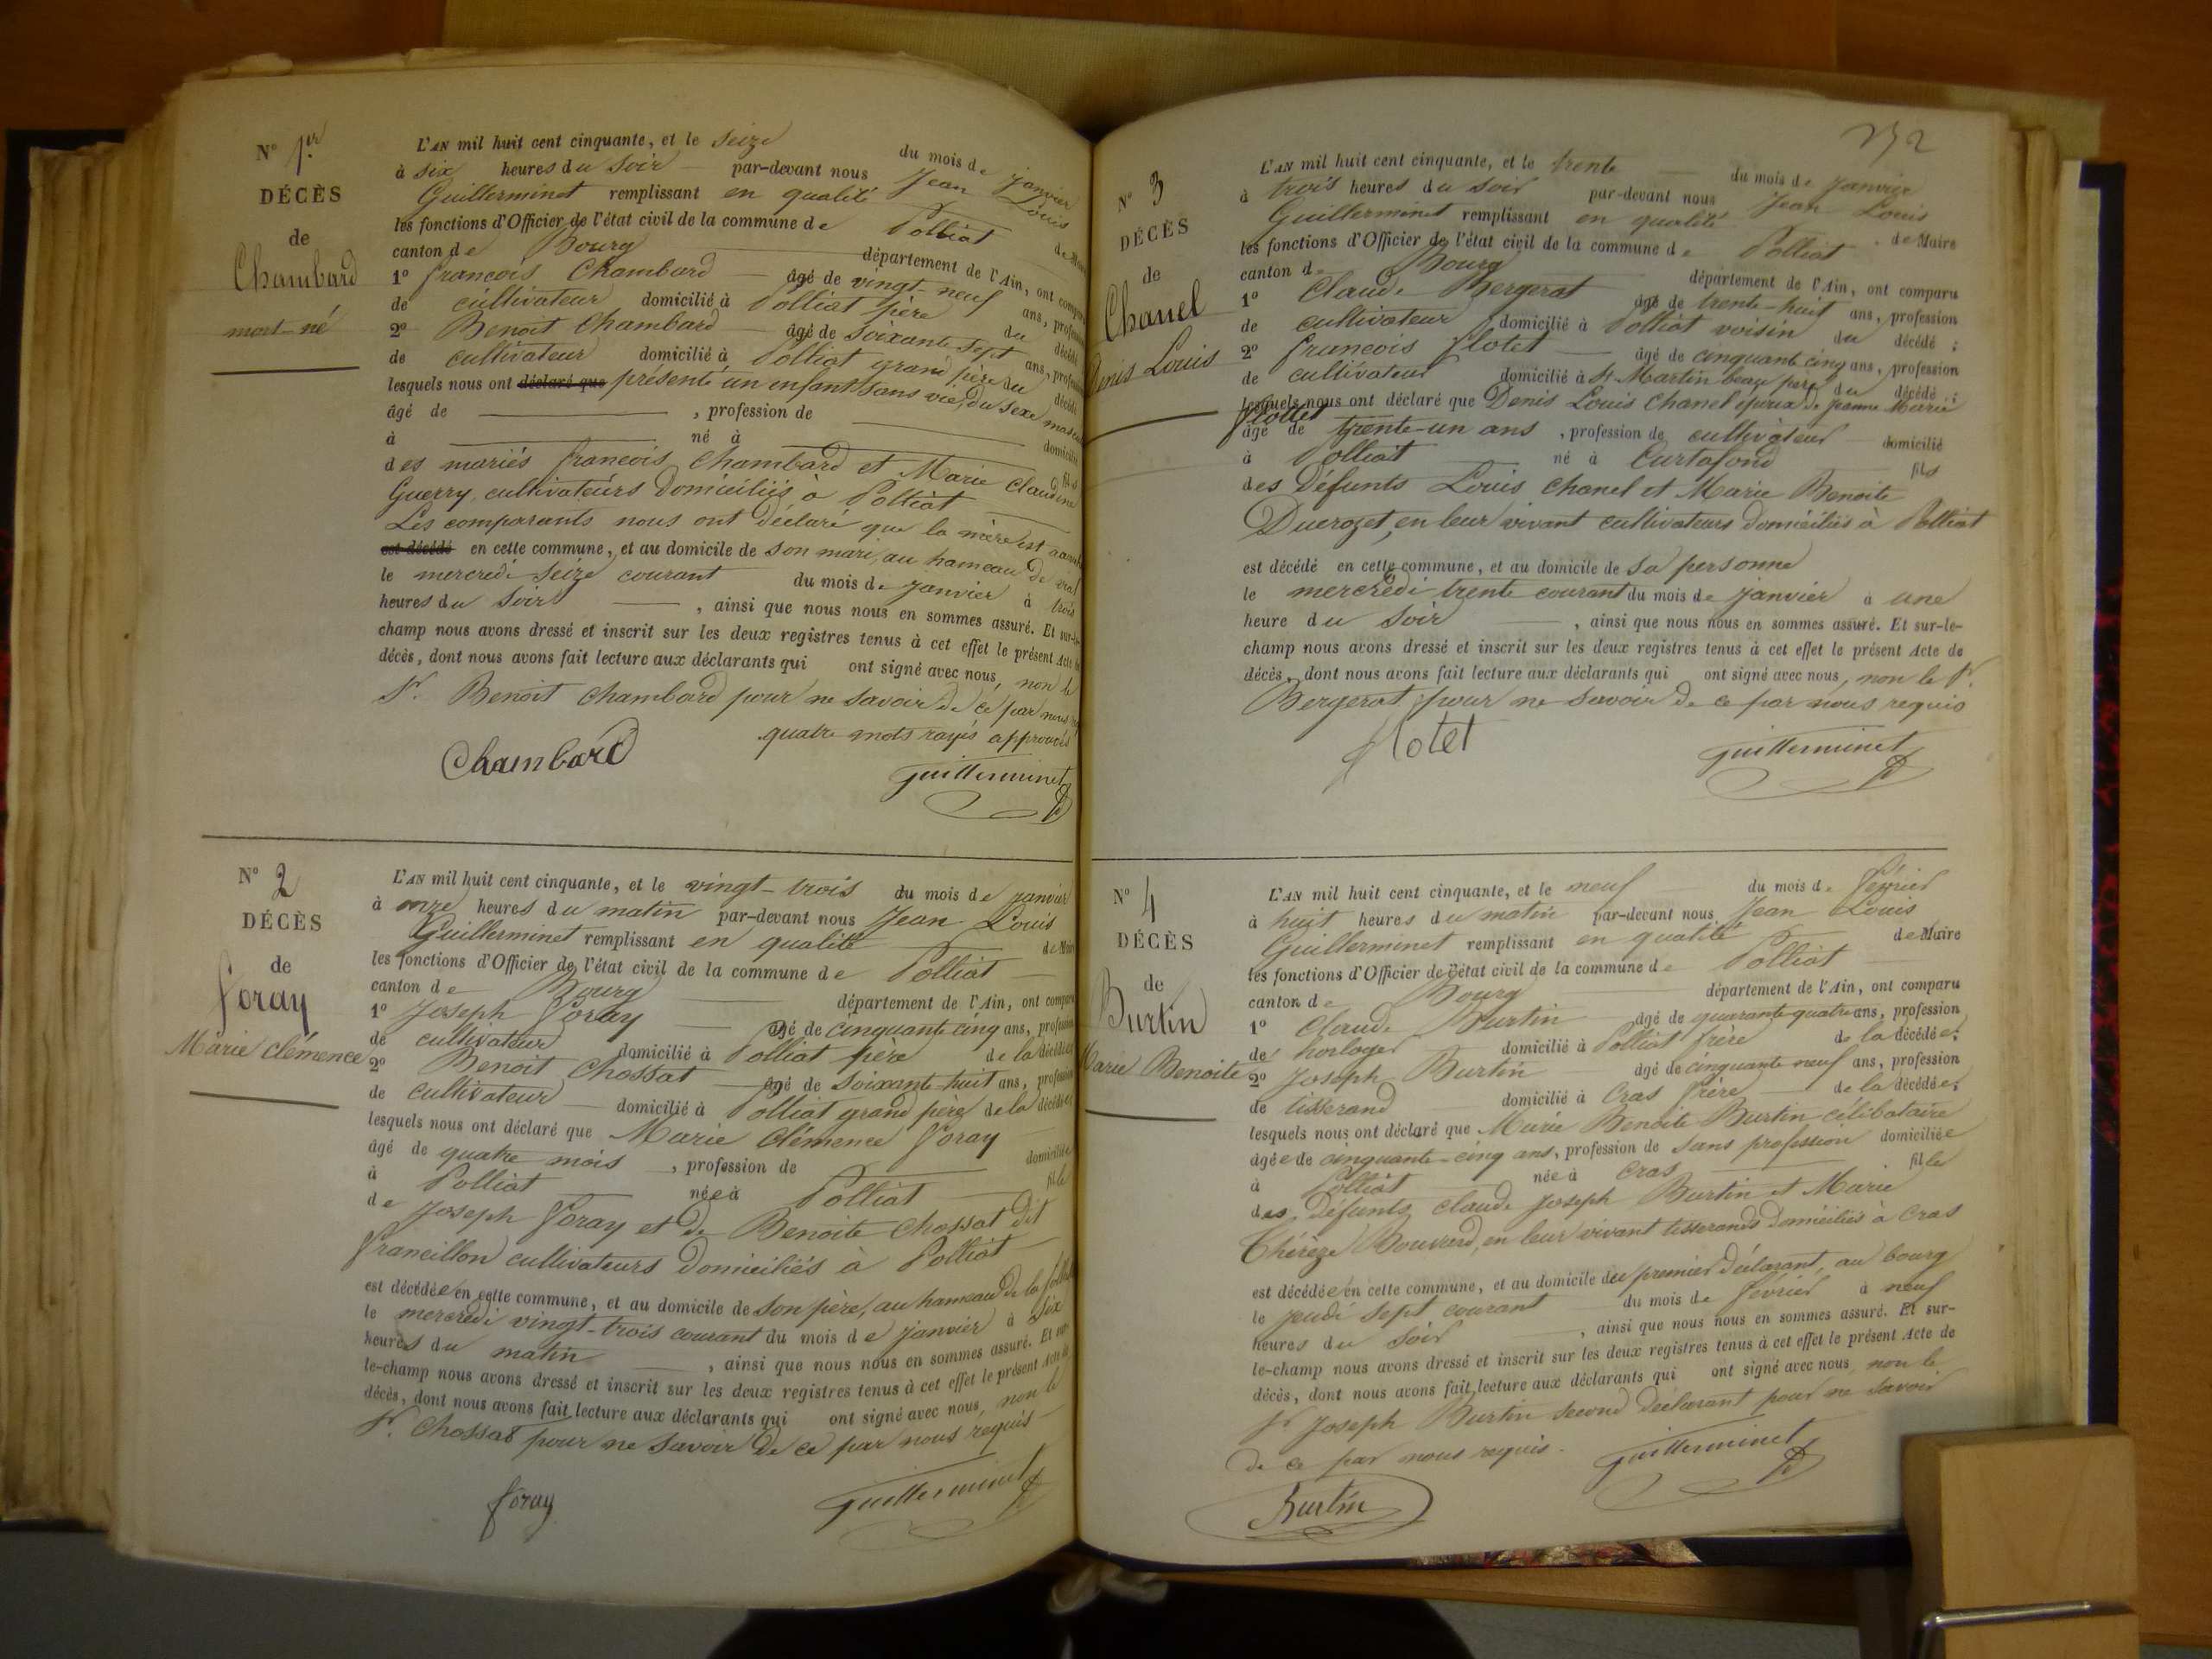 N° 1er
DÉCÈS
de
Chambard
mort-né
L'AN mil huit cent cinquante, et le seize du mois de janvier
à six heures du soir par-devant nous Jean Louis
Guillerminet remplissant en qualité de Maire
les fonctions d'Officier de l'état civil de la commune de Polliat
canton de Bourg département de l'Ain, ont comparu
1° francois Chambard âgé de vingt-neuf ans, profession
de cultivateur domicilié à Polliat père du décédé
2° Benoit Chambard âgé de soixante sept ans, profession
de cultivateur domicilié à Polliat grand père du décédé
lesquels nous ont déclaré que présenté un enfant sans vie, du sexe
âgé de , profession de domicilié
à né à fils
des mariés francois Chambard et Marie Claudine
Guerry, cultivateurs domiciliés à Polliat
Les comparants nous ont déclaré que la mère est
est décédé en cette commune, et au domicile de son mari, au hameau de
le mercredi seize courant du mois de janvier à trois
heures du soir , ainsi que nous nous en sommes assuré. Et sur-le-
champ nous avons dressé et inscrit sur les deux registres tenus à cet effet le présent Acte de
décès, dont nous avons fait lecture aux déclarants qui ont signé avec nous, non le
Sr. Benoit Chambard pour ne savoir de ce par nous
quatre mots rayés approuvés
Chambard
Guillerminet
N° 2
DÉCÈS
de
Foray
Marie Clémence
L'AN mil huit cent cinquante, et le vingt-trois du mois de janvier
à onze heures du matin par-devant nous Jean Louis
Guillerminet remplissant en qualité de Maire
les fonctions d'Officier de l'état civil de la commune de Polliat
canton de Bourg département de l'Ain, ont comparu
1° Joseph Foray âgé de cinquante cinq ans, profession
de cultivateur domicilié à Polliat père de la décédée
2° Benoit Chossat âgé de soixante huit ans, profession
de cultivateur domicilié à Polliat grand père de la décédée
lesquels nous ont déclaré que Marie Clémence Foray
âgé de quatre mois , profession de domiciliée
à Polliat née à Polliat fille
de Joseph Foray et de Benoite Chossat dit
francillon cultivateurs domiciliés à Polliat
est décédée en cette commune, et au domicile de son père, au hameau de la
le mercredi vingt-trois courant du mois de janvier à six
heures du matin , ainsi que nous nous en sommes assuré. Et sur-
le-champ nous avons dressé et inscrit sur les deux registres tenus à cet effet le présent Acte de
décès, dont nous avons fait lecture aux déclarants qui ont signé avec nous, non le
Sr. Chossat pour ne savoir de ce par nous requis
foray
Guillerminet
252
N° 3
DÉCÈS
de
Chanel
Denis Louis
L'AN mil huit cent cinquante, et le trente du mois de janvier
à trois heures du soir par-devant nous Jean Louis
Guillerminet remplissant en qualité de Maire
les fonctions d'Officier de l'état civil de la commune de Polliat
canton de Bourg département de l'Ain, ont comparu
1° Claude Bergerat âgé de trente-huit ans, profession
de cultivateur domicilié à Polliat voisin du décédé ;
2° francois flotet âgé de cinquante cinq ans, profession
de cultivateur domicilié à St Martin beau père du décédé ;
lesquels nous ont déclaré que Denis Louis Chanel époux de jeanne Marie
flottet
âgé de trente-un ans , profession de cultivateur domicilié
à Polliat né à Curtafond fils
des défunts Louis Chanel et Marie Benoite
Ducrozet, en leur vivant cultivateurs domiciliés à Polliat
est décédé en cette commune, et au domicile de sa personne
le mercredi trente courant du mois de janvier à une
heure du soir , ainsi que nous nous en sommes assuré. Et sur-le-
champ nous avons dressé et inscrit sur les deux registres tenus à cet effet le présent Acte de
décès, dont nous avons fait lecture aux déclarants qui ont signé avec nous, non le Sr.
Bergerat pour ne savoir de ce par nous requis
flotet
Guillerminet
N° 4
DÉCÈS
de
Burtin
Marie Benoite
L'AN mil huit cent cinquante, et le neuf du mois de février
à huit heures du matin par-devant nous Jean Louis
Guillerminet remplissant en qualité de Maire
les fonctions d'Officier de l'état civil de la commune de Polliat
canton de Bourg département de l'Ain, ont comparu
1° Claude Burtin âgé de quarante quatre ans, profession
de horloger domicilié à Polliat frère de la décédée;
2° Joseph Burtin âgé de cinquante neuf ans, profession
de tisserand domicilié à Cras frère de la décédée;
lesquels nous ont déclaré que Marie Benoite Burtin célibataire
âgée de cinquante-cinq ans, profession de sans profession domiciliée
à Polliat née à Cras fille
des défunts Claude Joseph Burtin et Marie
Thérèze Bouvard, en leur vivant tisserands domiciliés à Cras
est décédée en cette commune, et au domicile du premier déclarant, au bourg
le jeudi sept courant du mois de février à neuf
heures du soir , ainsi que nous nous en sommes assuré. Et sur-
le-champ nous avons dressé et inscrit sur les deux registres tenus à cet effet le présent Acte de
décès, dont nous avons fait lecture aux déclarants qui ont signé avec nous, non le
Sr Joseph Burtin second déclarant pour ne savoir
de ce par nous requis.
Guillerminet
Burtin